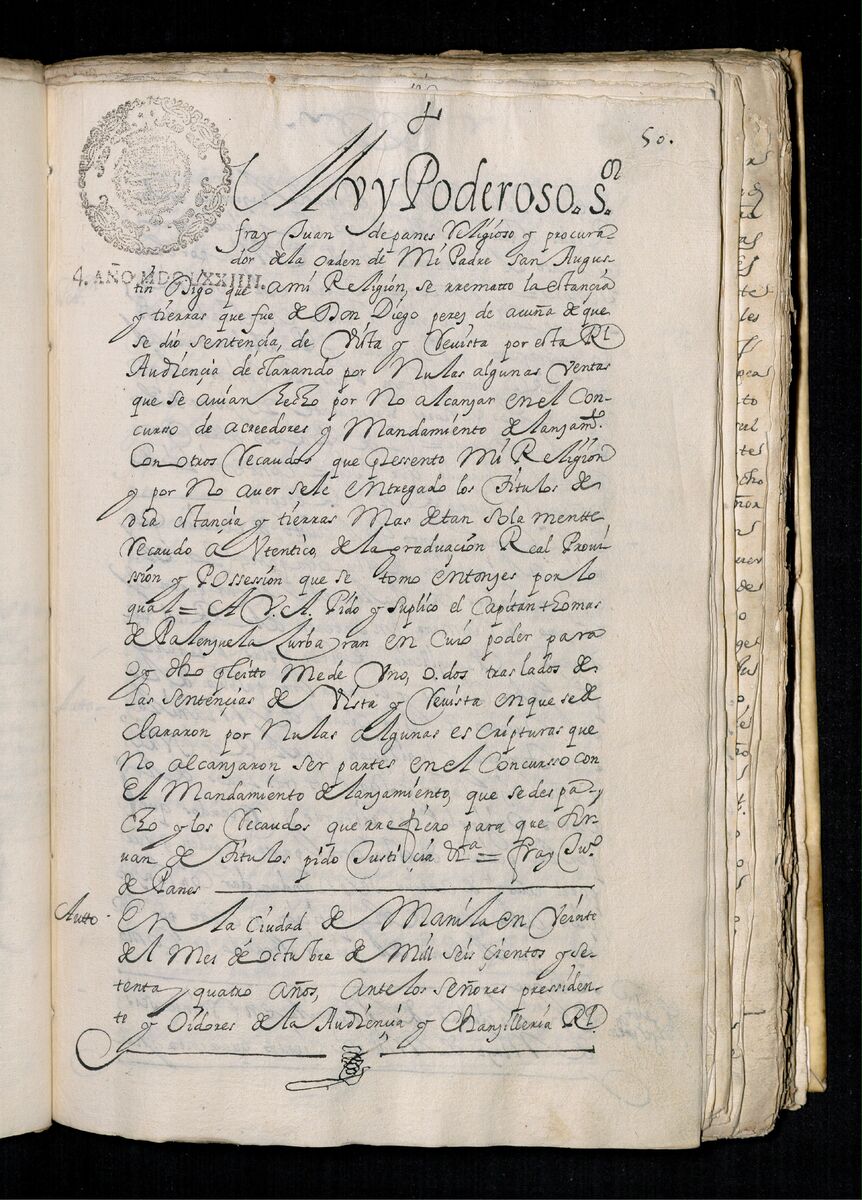 50.
Muy Poderoso. S.or
fray Juan de panes Religioso y procura-
dor de la orden de Mi Padre San Augus-
4. AÑO MDCLXXIIII.
tin Digo que a mi Religion, se rrematto la estançia
y tierras que fue de Don Diego perez de acuña de que
se dió sentençia, de Vista y Revista por esta Rl
Audiençia declarando por Nulas algunas Ventas
que se auian hecho por No alcanzar en el Con-
curso de acreedores y Mandamiento de lanzamto.
Con otros Recaudos que pressento Mi Religion
y por No auersele entregado los titulos de
dha estançia y tierras Mas de tan solamentte
Recaudo autentico, de la graduaçion Real Proui-
ssion y Possession que se tomo entonzes por lo
qual = A V. A. Pido y suplico el Capitan thomas
de Palenzuela Zurbaran en cuio poder para
oy dho pleitto me de Vno, o. dos traslados de
las sentençias de Vista y Revista en que se de-
clararon por Nulas algunas escripturas que
No alcanzaron ser partes en el Concursso con
El Mandamiento de lanzamiento, que se despa-
cho y los Recaudos que rrefiero para que sir-
uan de titulos pido Justiçia etta = fray Juo.
de Panes
Autto. En la Ciudad de Manila en Veinte
del Mes de octubre de Mill seis çientos y se-
tenta y quatro años, ante los señores pressiden-
te y Oidores de la Audiençia y Chanzilleria Rl.